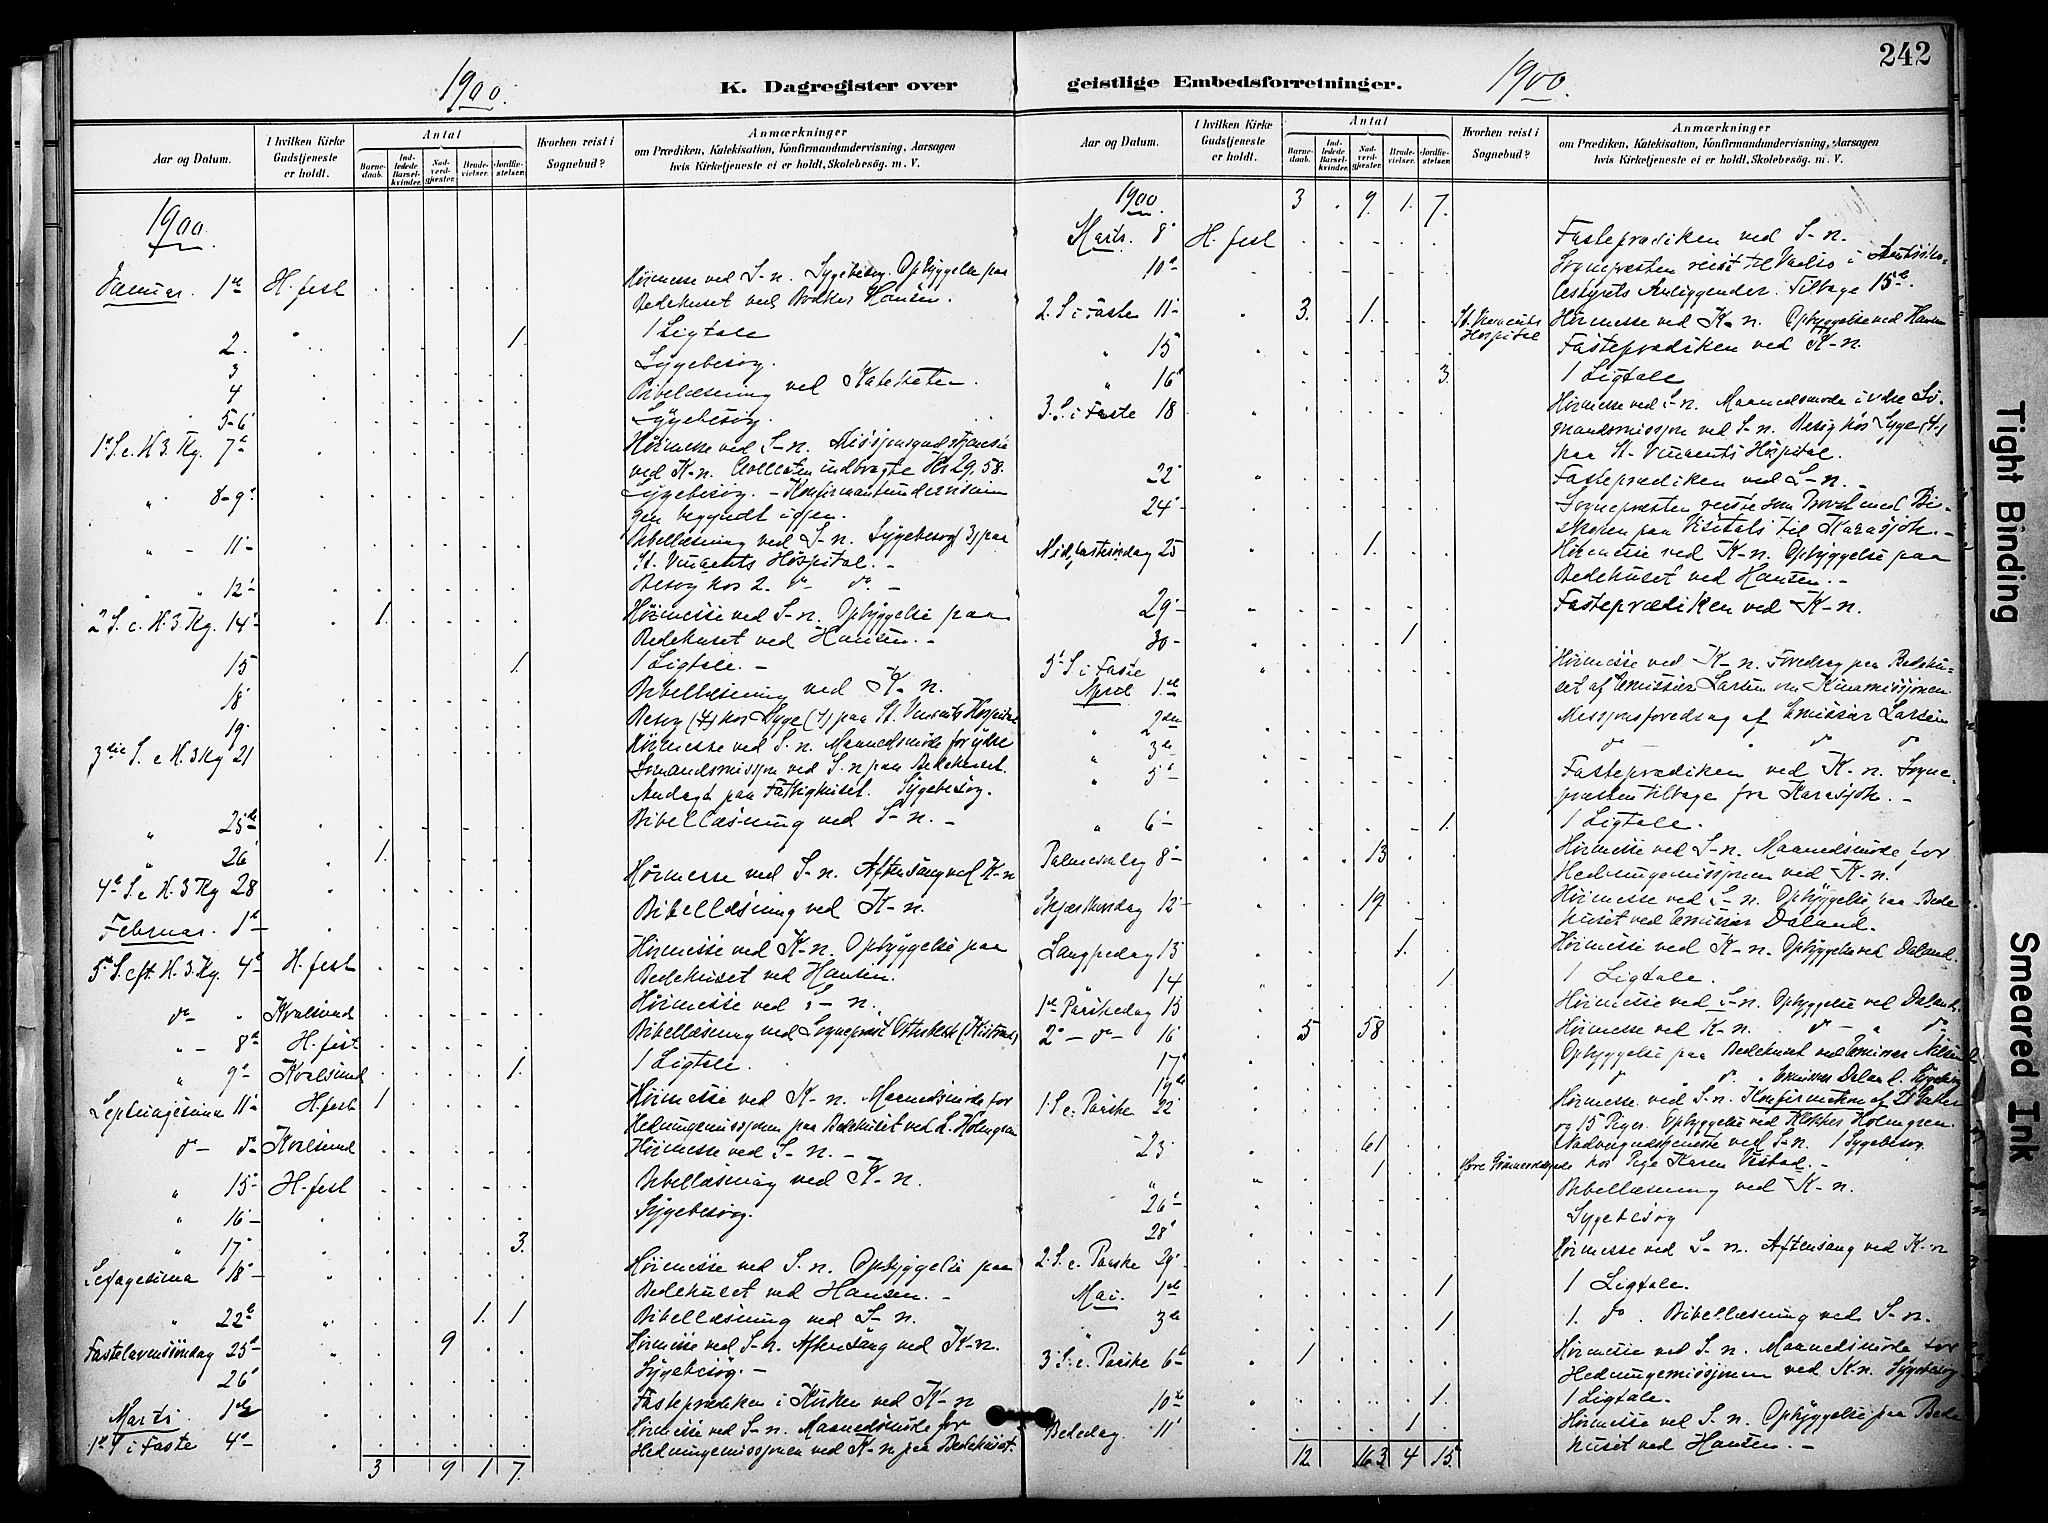 242
1900.
K. Dagregister over
geistlige Embedsforretninger.
1900.
Aar og Datum.
I hvilken Kirke Gudstjeneste er holdt.
Antal
Barnedaab.
Indledede Barselkvinder.
Nadverdgjæster.
Brudevielser.
Jordfæstelser.
Hvorhen reist i Sognebud?
Anmærkninger
om Prædiken, Katekisation, Konfirmandundervisning, Aarsagen
hvis Kirketjeneste ei er holdt, Skolebesøg. m. V.
1900.
Januar 1ste H.fest Høimesse ved S-n. Sygebesøg. Opbyggelse paa
Bedehuset ved Hansen.
2. 1. 1 Ligtale
3 Sygebesøg.
4 Bibellæsning ved Kateketen.
5-6 Sygebesøg.
1 S. e. H. 3. Kg. 7 Høimesse ved S-n. Missionsgudstjeneste
ved K-n. Collecten indbragte Kr 29.58.
8-9 Sygebesøg. - Konfirmantundervisnin
gen begyndt igjen.
" - 11 - Bibellæsning ved S-n. Sygebesøg (3) paa
St. Vincents Hospital. -
" " 12 - Besøg hos 2. do do -
2 S. e. H. 3. Kg. 14 1. Høimesse ved S-n. Opbyggelse paa
Bedehuset ved Hansen. -
15 1. 1 Ligtale. -
18 Bibellæsning ved K-n.
19 Besøg hos Syge (4) paa St. Vincents Hospital
3die S. e H. 3 Kg 21 Høimesse ved S-n. Maanedsmøde for ydre
Sømandsmission ved S-n paa Bedehuset.
Andagt paa Fattighuset. Sygebesøg.
" 25 Bibellæsning ved S-n. -
" 26 1.
4 S. e H. 3 Kg 28 Høimesse ved S-n. Aftensang ved K-n
Februar. 1 Bibellæsning ved K-n.
5 S. eft. H. 3. Kg. 4 H.fest Høimesse ved K-n. Opbyggelse paa
Bedehuset ved Hansen.
do Kvalsund Høimesse ved S-n.
" - 8 H.fest Bibellæsning ved Sogneprest
" 9 Kvalsund 1. 1 Ligtale.
Septuagesima 11 H.fest 1 Høimesse ved K-n. Maanedsmøde for
Hedningemissionen paa Bedehuset ved L. Holmgren
do - do Kvalsund Høimesse ved S-n. -
" 15 H.fest Bibellæsning ved K-n.
" 16 Sygebesøg.
" 17 3.
Sexagesima 18 Høimesse ved S-n. Opbyggelse paa
Bedehuset ved Hansen. -
" 22 1. 1 Bibellæsning ved S-n.
Fastelavnsøndag 25 9 Høimesse ved S-n. Aftensang ved K-n.
26 Sygebesøg. -
Marts 1 Fasteprædiken i Kirken ved K-n
1 S i Faste 4 Høimesse ved S-n. Maanedsmøde for
Hedningemissionen ved K-n paa Bedehuset.
3 9 1 7.
Aar og Datum.
I hvilken Kirke Gudstjeneste er holdt.
Antal
Barnedaab.
Indledede Barselkvinder.
Nadverdgjæster.
Brudevielser.
Jordfæstelser.
Hvorhen reist i Sognebud?
Anmærkninger
om Prædiken, Katekisation, Konfirmandundervisning, Aarsagen
hvis Kirketjeneste ei er holdt, Skolebesøg. m. V.
1900. 3 9. 1. 7.
Marts. 8 H.fest Fasteprædiken ved S-n.
10 Sognepresten reist til Vadsø i
Anliggender. Tilbage 15.
2. S i Faste 11 3. 1. St. Vincents Hospital Høimesse ved K-n. Opbyggelse ved Hansen
" 15 Fasteprædiken ved K-n.
" 16 3. 1 Ligtale
3. S. i Faste 18 Høimesse ved S-n. Maanedsmøde i ydre Sø-
mandsmission ved S-n. Besøg hos Syge (4)
paa St. Vincents Hospital.
22 Fasteprædiken ved S-n. -
24 Sognepresten reiste som Provst med Bi-
skopen paa Visitats til Karasjok. -
Midfastesøndag 25 1. Høimesse ved K-n. Opbyggelse paa
Bedehuset ved Hansen. -
29 Fasteprædiken ved K-n.
30 1
5 S i Faste
April 1 Høimesse ved K-n. Foredrag paa Bedehu-
set af Emissær Larsen om Kinamissionen
" 2 Missionsforedrag af Emissær Larsen
" 3 do " do do
" 5 Fasteprædiken ved K-n. Sogne-
presten tilbage fra Karasjok. -
" 6 1. 1 Ligtale.
Palmesøndag 8 13 Høimesse ved S-n. Maanedsmøde for
Hedningemissionen ved K-n.
Skjærthorsdag 12 19 Høimesse ved S-n. Opbyggelse paa Bede
huset ved Emissær Daland.
Langfredag 13 1. Høimesse ved K-n. Opbyggelse ved Daland.
14 1 1 Ligtale.
1 Paaskedag 15 Høimesse ved S-n. Opbyggelse ved Daland.
2 - do - 16 5 58 Høimesse ved K-n. do - " do
17 Opbyggelse paa Bedehuset ved Emissær
19 do " do. Emissær Daland. Sygebesøg
1 S. e. Paaske 22 Høimesse ved S-n. Konfirmation af 21 Gutter
og 15 Piger. Opbyggelse ved Klokker Holmgren.
23 61 Nadvergudstjeneste ved S-n. 1 Sygebesøg
" 1 hos Pige Karen
26 Bibellæsning ved K-n.
28 Sygebesøg
2. S. e. Paaske 29 Høimesse ved S-n. Aftensang ved K-n
Mai. 1 1 1 Ligtale.
" 3 1 1. do. Bibellæsning ved S-n.
3 S. e. Paaske 6 1 Høimesse ved S-n. Maanedsmøde for
Hedningemissionen ved K-n. Sygebesøg
10 1. 1 Ligtale.
Bededag 11 1 Høimesse ved S-n. Opbyggelse paa Bede
huset ved Hansen. -
12. 163 4 15.
Tight Binding
Smeared Ink